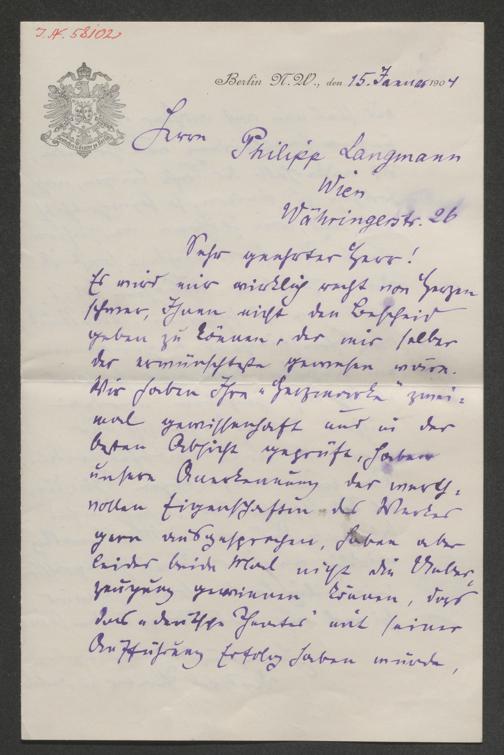 J.N. 58102
Berlin N.W., den 15. Januar 1904
Herrn
Philipp Langmann
Wien
Währingerstr. 26
Sehr geehrter Herr!
Es wird mir wirklich recht von Herzen
schwer, Ihnen nicht den Bescheid
geben zu können, der mir selber
der erwünschteste gewesen wäre.
Wir haben Ihre „Herzmarke“ zwei=
mal gewissenhaft und in der
besten Absicht geprüft, haben
unsere Anerkennung der werth=
vollen Eigenschaften des Werkes
gern ausgesprochen, haben aber
leider beide Mal nicht die Ueber=
zeugung gewinnen können, dass
das „deutsche Theater“ mit seiner
Aufführung Erfolg haben würde,